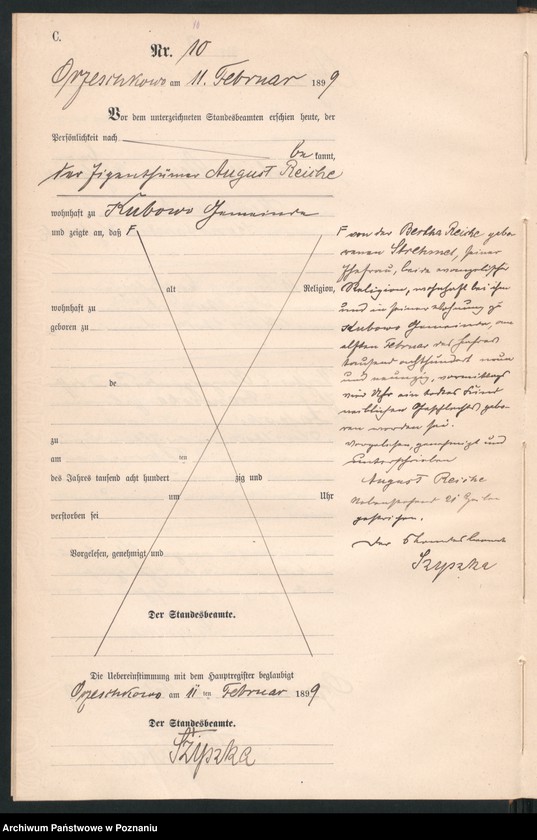 C.
Nr. 10
Orzeschkowo am 11. Februar 1899
Vor dem unterzeichneten Standesbeamten erschien heute, der
Persönlichkeit nach
be kannt,
der Eigenthümer August Reiche
wohnhaft zu Kubowo Gemeinde
und zeigte an, daß F
alt Religion,
wohnhaft zu
geboren zu
de
zu
am ten
des Jahres tausend acht hundert zig und
um Uhr
verstorben sei
Vorgelesen, genehmigt und
Der Standesbeamte.
Die Uebereinstimmung mit dem Hauptregister beglaubigt
Orzeschkowo am 11 ten Februar 1899
Der Standesbeamte.
Szyszka
F von der Bertha Reiche gebo-
renen Strehmel, seiner
Ehefrau, beide evangelischer
Religion, wohnhaft bei ihm
und in seiner Wohnung zu
Kubowo Gemeinde, am
elften Februar des Jahres
tausend achthundert neun
und neunzig, vormittags
vier Uhr ein todtes Kind
weiblichen Geschlechts gebo-
ren worden sei.
Vorgelesen, genehmigt und
unterschrieben
August Reiche
Nebenstehend
gestrichen.
Der Standesbeamte
Szyszka
Archiwum Państwowe w Poznaniu